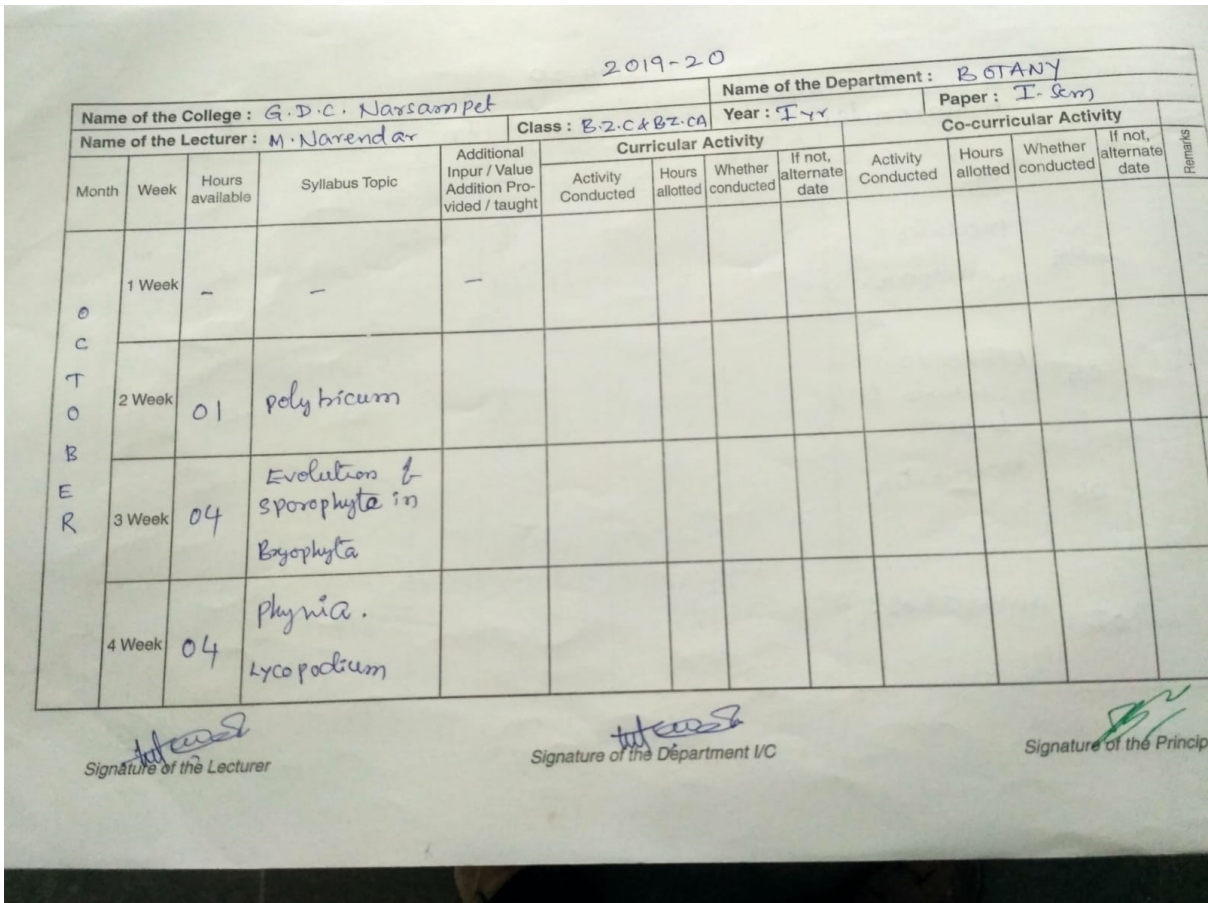 2019-20
Name of the College : G.D.C. Narsampet
Name of the Department : BOTANY
Name of the Lecturer : M. Narendar
Class : B.Z.C & BZ.CA
Year : I yr
Paper : I - Sem
Month
Week
Hours
available
Syllabus Topic
Additional
Inpur / Value
Addition Pro-
vided / taught
Curricular Activity
Activity
Conducted
Hours
allotted
Whether
conducted
If not,
alternate
date
Co-curricular Activity
Activity
Conducted
Hours
allotted
Whether
conducted
If not,
alternate
date
Remarks
OCTOBER
1 Week
-
-
-
2 Week
01
polytricum
3 Week
04
Evolution of
sporophyte in
Bryophyta
4 Week
04
Rhynia.
Lycopodium
Signature of the Lecturer
Signature of the Department I/C
Signature of the Princip